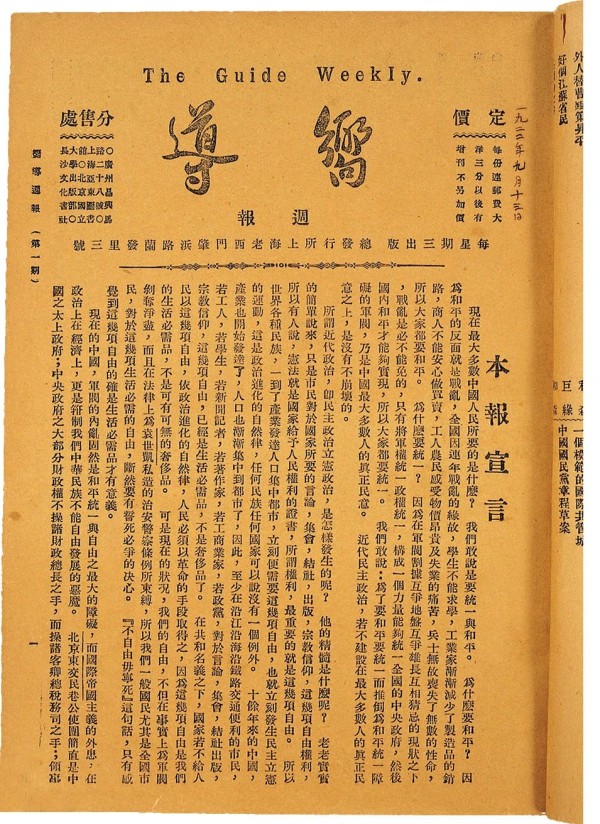 The Guide Weekly.
嚮導
週報
定價
每份連郵費大
洋三分以後有
增刊不另加價
分售處
○廣州昌興馬
路二十八號○
上海亞東圖書
館○北京國立
大學出版部○
長沙文化書社
一九二二年九月十三日
每星期三出版 總發行所上海老西門肇浜路蘭發里三號
本報宣言
現在最大多數中國人民所要的是什麼？我們敢說是要統一與和平。爲什麼要和平？因
爲和平的反面就是戰亂，全國因連年戰亂的緣故，學生不能求學，工業家漸漸減少了製造品的銷
路，商人不能安心做買賣，工人農民感受物價昂貴及失業的痛苦，兵士無故喪失了無數的性命，
所以大家都要和平。爲什麼要統一？因爲在軍閥割據互爭地盤互爭雄長互相猜忌的現狀之下
，戰亂是必不能免的，只有將軍權統一政權統一，構成一個力量能夠統一全國的中央政府，然後
國內和平才能夠實現，所以大家都要統一。我們敢說：爲了要和平要統一而推倒爲和平統一障
礙的軍閥，乃是中國最大多數人的眞正民意。近代民主政治，若不建設在最大多數人的眞正民
意之上，是沒有不崩壞的。
所謂近代政治，卽民主政治立憲政治，是怎樣發生的呢？他的精髓是什麼呢？老老實實
的簡單說來，只是市民對於國家所要的言論，集會，結社，出版，宗教信仰，這幾項自由權利，
所以有人說，憲法就是國家給予人民權利的證書，所謂權利，最重要的就是這幾項自由。所以
世界各種民族，一到了產業發達人口集中都市，立刻便需要這幾項自由，也就立刻發生民主立憲
的運動，這是政治進化的自然律，任何民族任何國家可以說沒有一個例外。十餘年來的中國，
產業也開始發達了，人口也漸漸集中到都市了，因此，至少在沿江沿海沿鐵路交通便利的市民，
若工人，若學生，若新聞記者，若著作家，若工商業家，若政黨，對於言論，集會，結社，出版，
宗教信仰，這幾項自由，已經是生活必需品，不是奢侈品了。在共和名義之下，國家若不給人
民以這幾項自由，依政治進化的自然律，人民必須以革命的手段取得之，因爲這幾項自由是我們
的生活必需品，不是可有可無的奢侈品。可是現在的狀況，我們的自由，不但在事實上爲軍閥
剝奪淨盡，而且在法律上爲袁世凱私造的治安警察條例所束縛，所以我們一般國民尤其是全國市
民，對於這幾項生活必需的自由，斷然要有誓死必爭的決心。『不自由毋寧死』這句話，只有感
覺到這幾項自由的確是生活必需品才有意義。
現在的中國，軍閥的內亂固然是和平統一與自由之最大的障礙，而國際帝國主義的外患，在
政治上在經濟上，更是箝制我們中華民族不能自由發展的惡魔。北京東交民巷公使團簡直是中
國之太上政府；中央政府之大部分財政權不操諸財政總長之手，而操諸客卿總稅務司之手；領事
嚮導週報（第一期）
一
好個江蘇省民
一個模範的國際共管城
中國國民黨黨章程草案